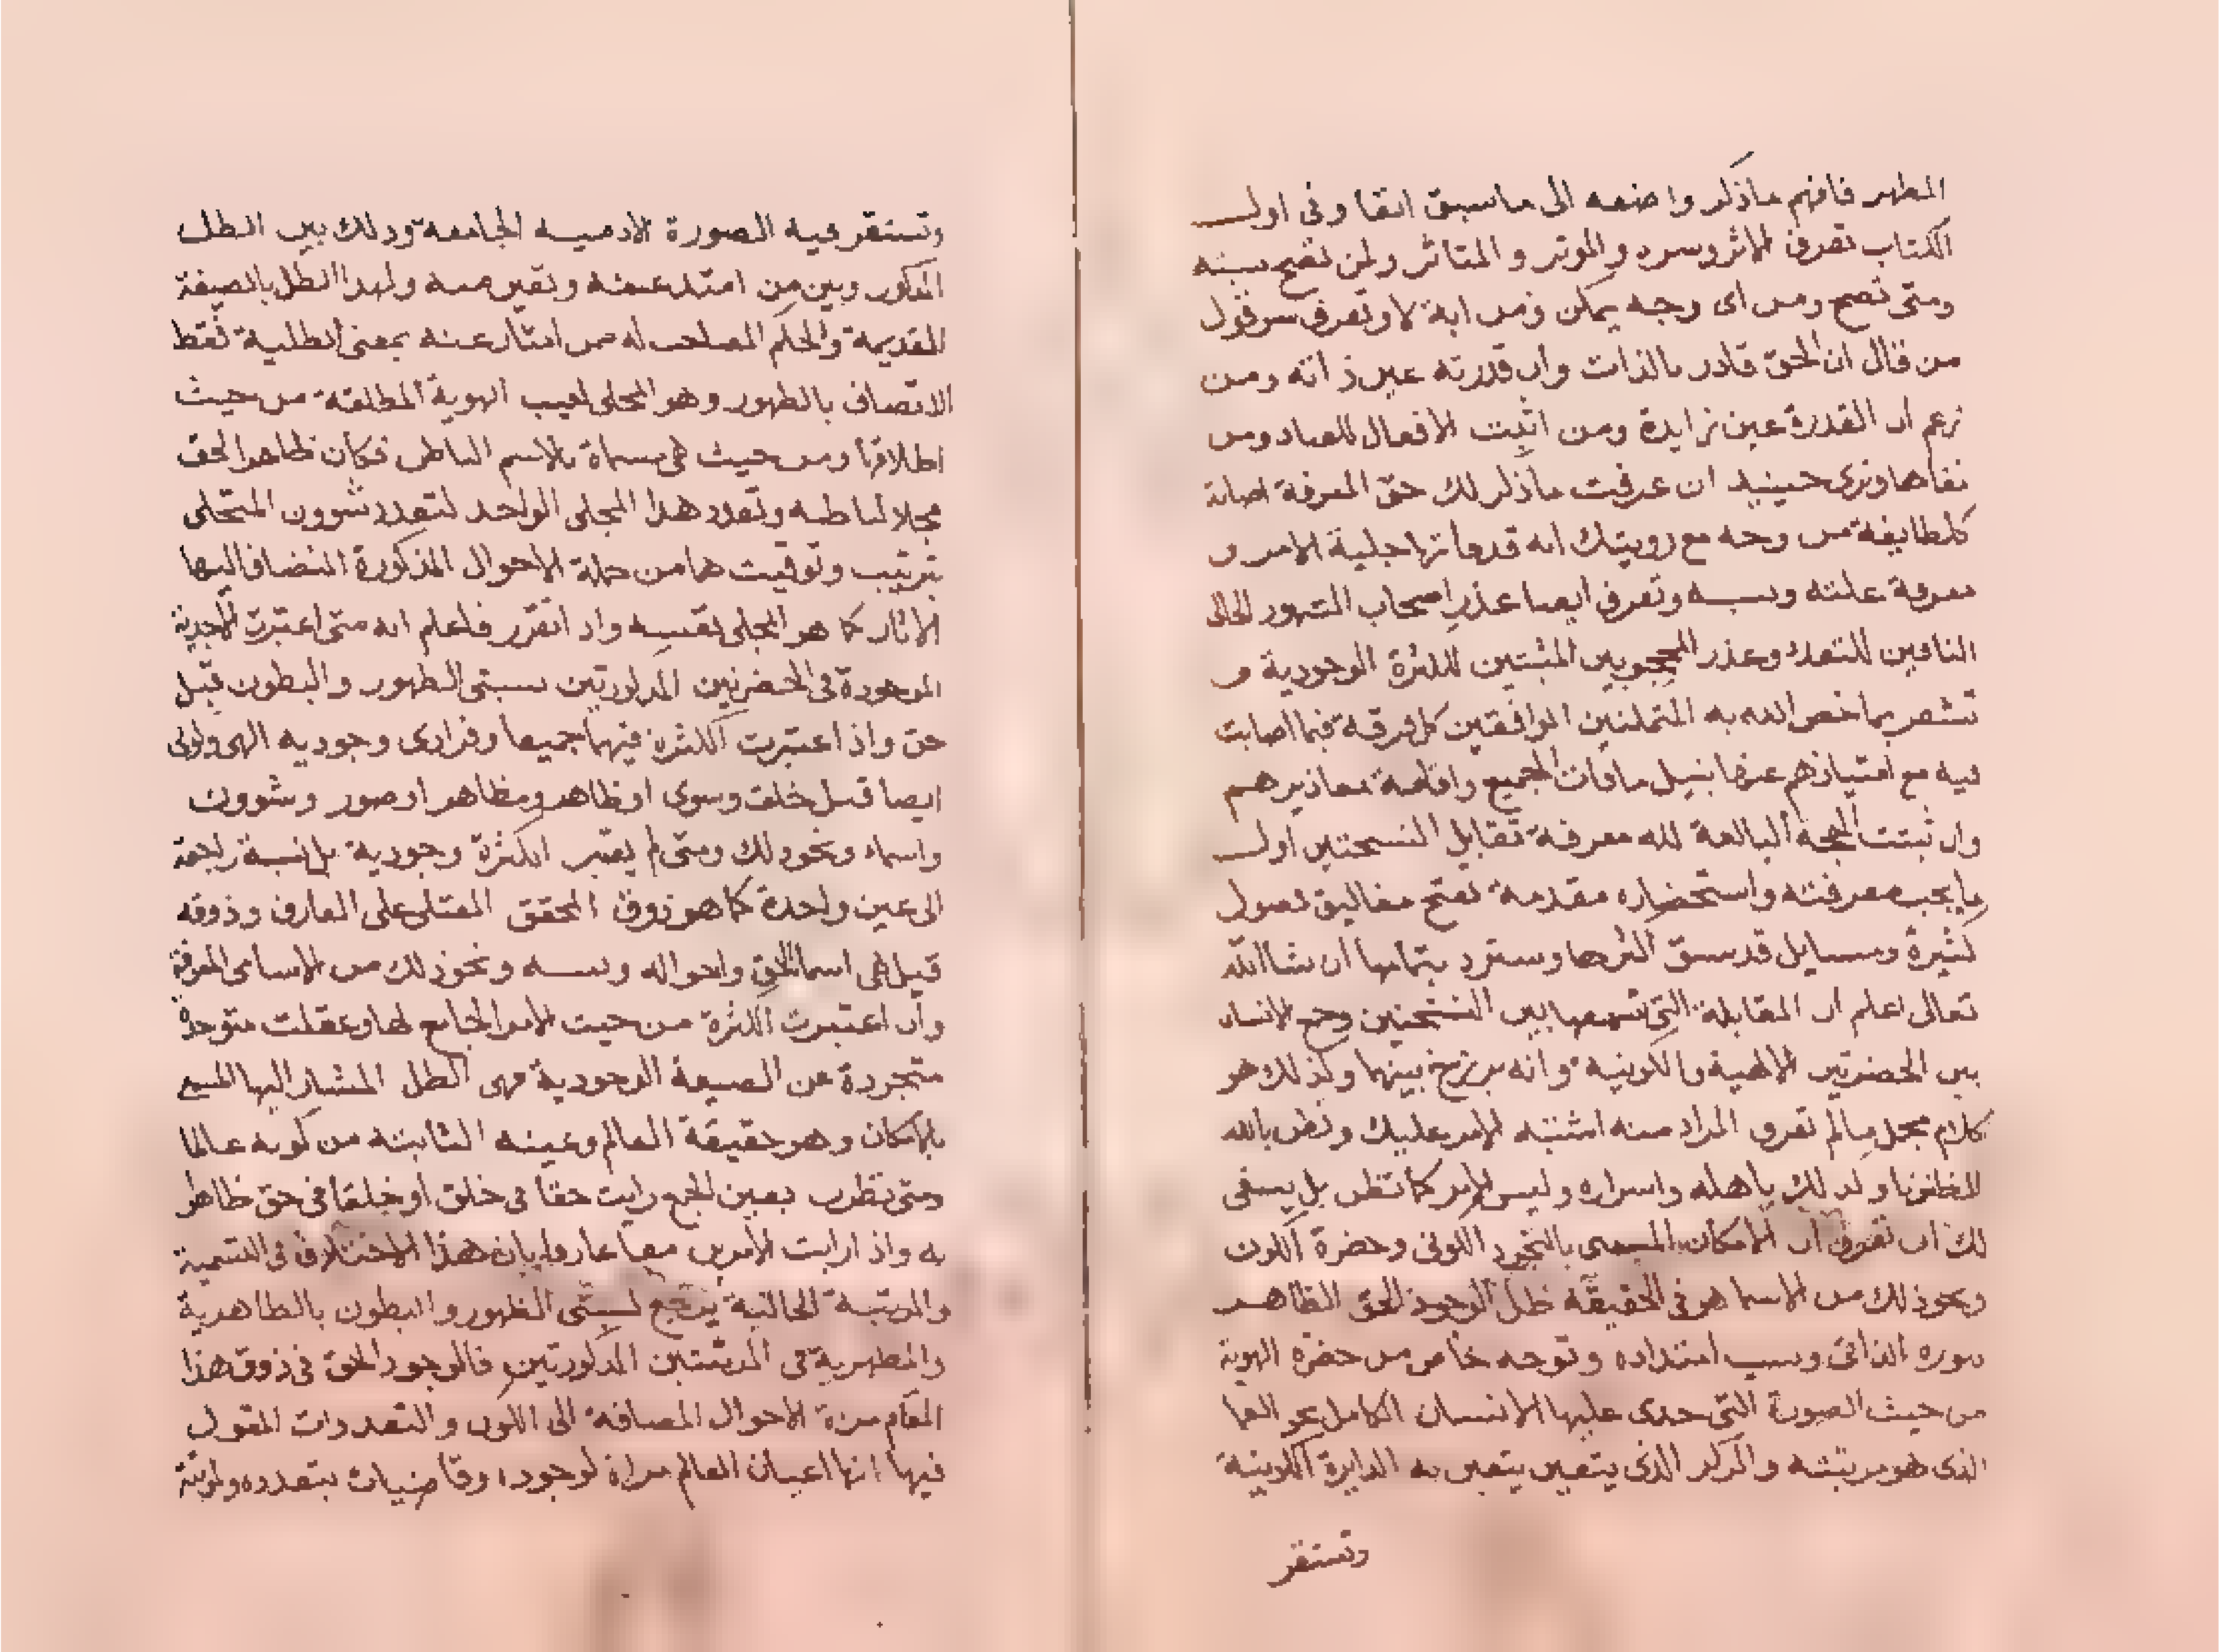 المظهر فافهم ماذكر واضفه الى ماسبق انفا وفى اول
الكتاب تعرف الاثر وسره والموثر والمتاثر ولمن تصح نسبته
ومتى تصح ومن اى وجه يمكن ومن اية لا وتعرف سر قول
من قال ان الحق قادر بالذات وان قدرته عين ذاته ومن
زعم ان القدرة عين زايدة ومن اثبت الافعال للعباد ومن
نفاها وترى حينيذ ان عرفت ماذكر لك حق المعرفة اصابة
كل طايفة من وجه مع رويتك انه قدفاتها جلية الامر و
معرفة علته وسببه وتعرف ايضا عذر اصحاب الشهود الحالى
النافين للتعدد وعذر المحجوبين المثبتين للكثرة الوجودية و
تشعر بما خص الله به المتمكنين الموافقين كل فرقة فيما اصابت
فيه مع امتيازهم عنها بنيل مافات الجميع واقامة معاذيرهم
وان ثبتت الحجة البالغة لله معرفة تقابل النسختين اول
مايجب معرفته واستحضاره مقدمة تفتح مغاليق فصول
كثيرة ومسايل قد سبق اكثرها وسترد بتمامها ان شاالله
تعالى اعلم ان المقابلة التى تسمعها بين النسختين وجمع الانسان
بين الحضرتين الالهية والكونية وانه برزخ بينهما وكذلك هو
كلام مجمل مالم تعرف المراد منه اشتبه الامر عليك وتظن بالله
الظنونا وكذلك باهله واسراره وليس الامر كما تظن بل ينبغى
لك ان تعرف ان الامكان المسمى بالتجرد الكونى وحضرة الكون
ونحو ذلك من الاسما هو فى الحقيقة ظل الوجود الحق الظاهر
بنوره الذاتى وسبب امتداده وتوجه خاص من حضرة الهوية
من حيث الصورة التى حذى عليها الانسان الكامل نحو العما
الذى هو مرتبته والمركز الذى يتعين يتعين به الدايرة الكونية
وتستقر
وتستقر فيه الصورة الادمية الجامعة وذلك بين الظل
المذكور وبين من امتد عنه وتعين منه ولهذا الظل بالصيغة
القديمة والحكم المصاحب له من امتاز عنه بمعنى الظلية فقط
الاتصاف بالظهور وهو المجلى لغيب الهوية المطلقة من حيث
اطلاقها ومن حيث هى مسماة بالاسم الباطن فكان ظاهر الحق
مجلا لباطنه وتعدد هذا المجلى الواحد لتعدد شوون المتجلى
بترتيب وتوقيت هما من جملة الاحوال المذكورة المضاف اليها
الاثار كما هو المجلى لنفسه واذ اتقرر فاعلم انه متى اعتبرت الاحدية
الموجودة فى الحضرتين المذكورتين نسبتى الظهور والبطون قيل
حق واذ اعتبرت الكثرة فيهما جميعا وفرادى وجودية الهى وكونى
ايضا قيل خلق وسوى او ظاهر ومظاهر او صور وشوون
واسماء ونحو ذلك ومتى لم يعتبر الكثرة وجودية بل نسبة راجعة
الى عين واحدة كما هو ذوق المحقق المعتلى على العارف وذوقه
قيل هى اسما الحق واحواله ونسبه ونحو ذلك من الاسامى المعرفة
وان اعتبرت الكثرة من حيث الامر الجامع لها وعقلت متوحدة
متجردة عن الصبغة الوجودية فهى الظل المشار اليها المسمى
بالامكان وهو حقيقة العالم وعينه الثابتة من كونه عالما
ومتى نظرت بعين الجمع رايت حقا فى خلق او خلقا فى حق ظاهر
به واذ ارايت الامرين معا عارفا بان هذا الاختلاف فى التسمية
والمرتبة الحالتية ينتج نسبتى الظهور والبطون بالظاهرية
والمظهرية فى المرتبتين المذكورتين فالوجود الحق فى ذوق هذا
المقام مرءاة الاحوال المضافة الى الكون والتعددات المقول
فيها انها اعيان العالم مراة لوجوده وقاضيات بتعدده ولمرتبته